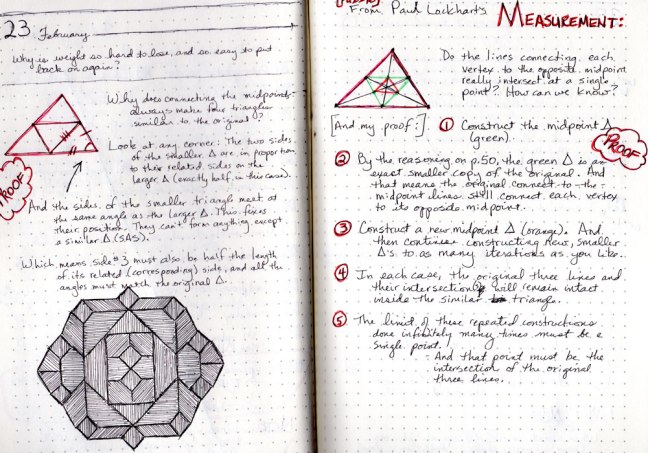 23 February
Why is weight so hard to lose, and so easy to put
back on again?
Why does connecting the midpoints
always make four triangles
similar to the original?
Look at any corner: The two sides
of the smaller Δ are in proportion
to their related sides on the
larger Δ (exactly half, in this case).
PROOF
And the sides of the smaller triangle meet at
the same angle as the larger Δ. This fixes
their position. They can't form anything except
a similar Δ (SAS).
Which means side #3 must also be half the length
of its related (corresponding) side, and all the
angles must match the original Δ.
From Paul Lockhart's MEASUREMENT:
Do the lines connecting each
vertex to the opposite midpoint
really intersect at a single
point? How can we know?
[And my proof:] ① Construct the midpoint Δ
(green).
PROOF
② By the reasoning on p.50, the green Δ is an
exact smaller copy of the original. And
that means the original connect-to-the-
midpoint lines still connect each vertex
to its opposite midpoint.
③ Construct a new midpoint Δ (orange). And
then continue constructing new, smaller
Δ's to as many iterations as you like.
④ In each case, the original three lines and
their intersection will remain intact
inside the similar triangle.
⑤ The limit of these repeated constructions
done infinitely many times must be a
single point!
- And that point must be the
intersection of the original
three lines.